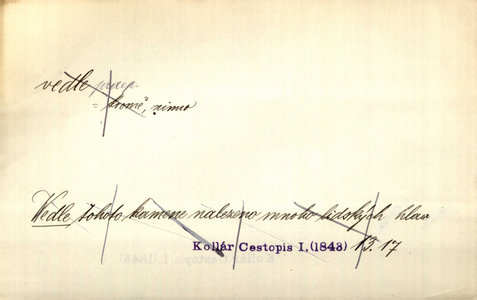 vedle praep.
= kromě, mimo
Wedle tohoto kamene nalezeno mnoho lidských hlav
Kollár Cestopis I, (1843) 15. 17